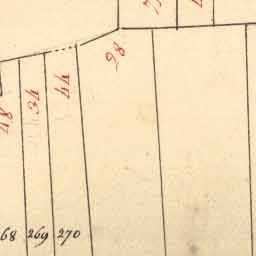 98
44
34
48
68 269 270